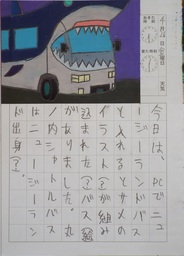 4月 日 曜日
天気
今日は、PCでニュ
ージーランドバス
と入れるとサメの
イラスト(?)が組み
込まれた(?)バス
がありました。丸
ノ内
はニュージーラン
ド出身(?)。